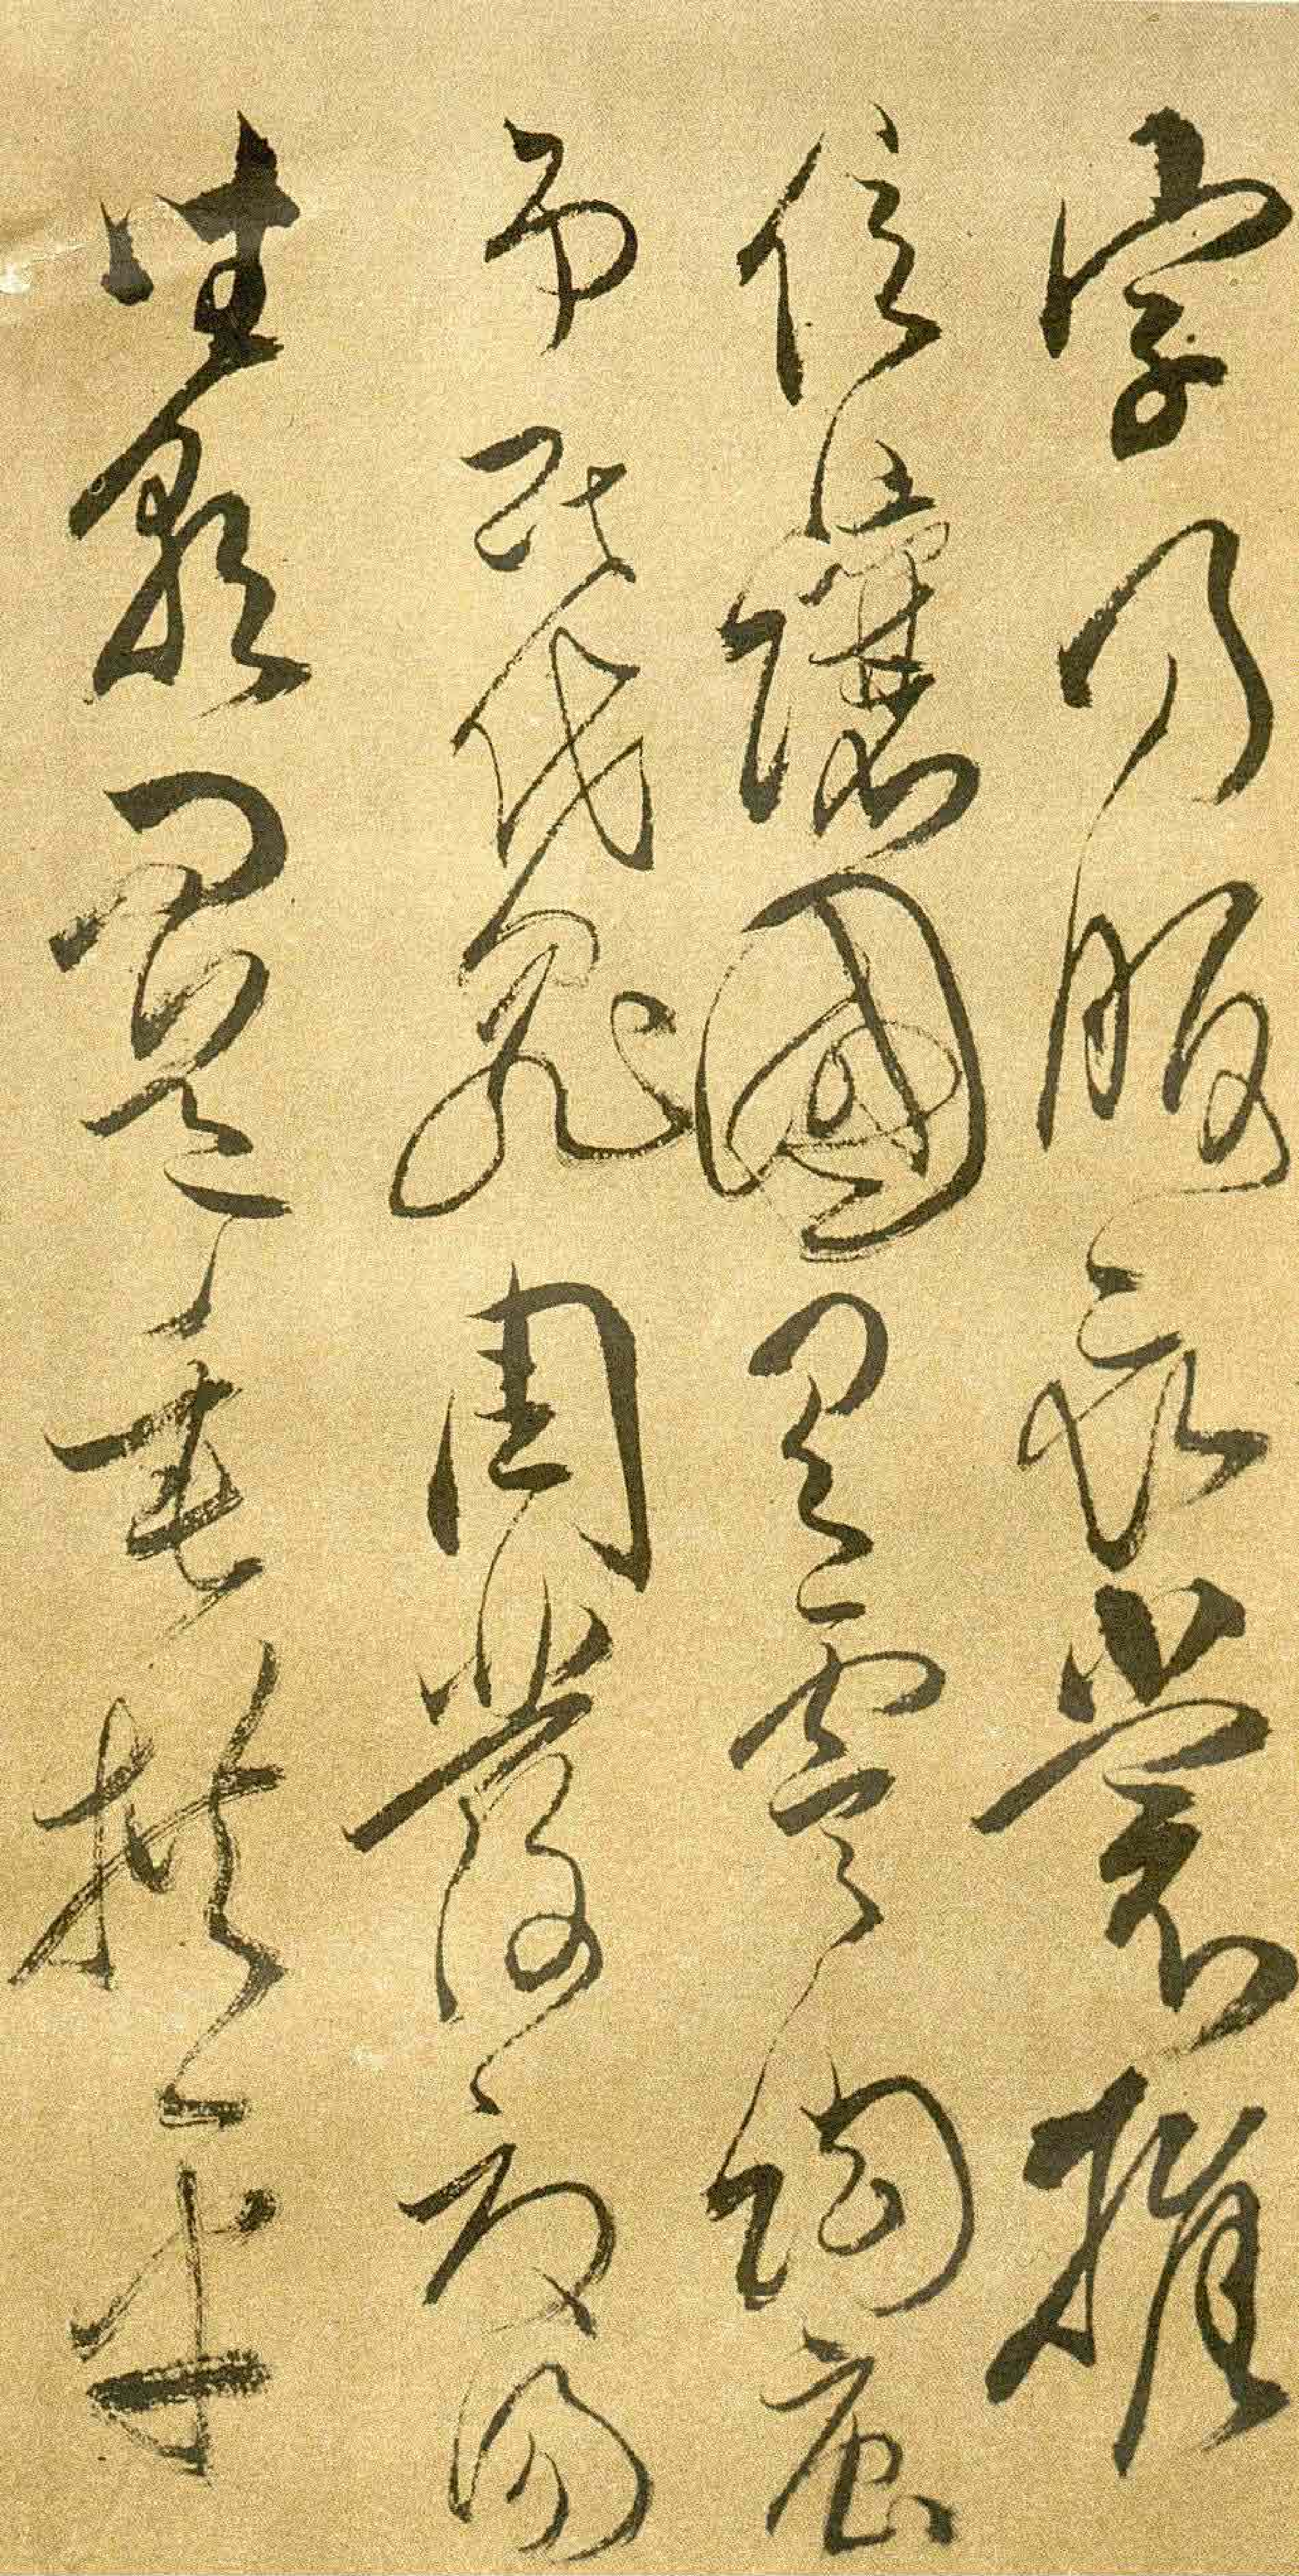 字乃服衣裳推
位讓國有虞陶唐
弔民伐罪周發商湯
坐朝問道垂拱平